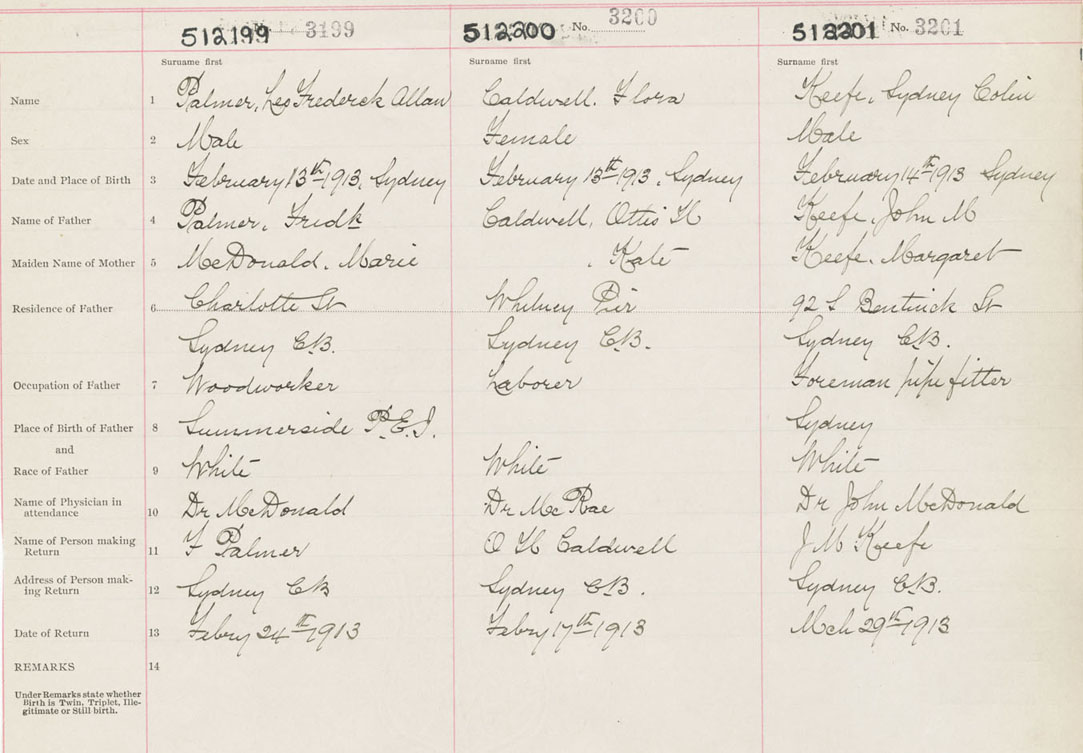 512199 No. 3199 512200 No. 3200 512201 No. 3201
Surname first Surname first Surname first
Name 1 Palmer, Les Frederick Allan Caldwell. Flora Keefe, Sydney Colin
Sex 2 Male Female Male
Date and Place of Birth 3 February 13th 1913, Sydney February 13th 1913, Sydney February 14th 1913 Sydney
Name of Father 4 Palmer, Fredk Caldwell, Ottis H Keefe, John M
Maiden Name of Mother 5 McDonald, Marie , Kate Keefe, Margaret
Residence of Father 6 Charlotte St Whitney Pier 92 S Bentinck St
Sydney C.B. Sydney C.B. Sydney C.B.
Occupation of Father 7 Woodworker Laborer Foreman pipe fitter
Place of Birth of Father 8 Summerside P.E.I. Sydney
and
Race of Father 9 White White White
Name of Physician in
attendance 10 Dr McDonald Dr McRae Dr John McDonald
Name of Person making
Return 11 F Palmer O H Caldwell J M Keefe
Address of Person mak-
ing Return 12 Sydney CB Sydney C.B. Sydney C.B.
Date of Return 13 Febry 24th 1913 Febry 17th 1913 Mch 29th 1913
REMARKS 14
Under Remarks state whether
Birth is Twin, Triplet, Ille-
gitimate or Still birth.